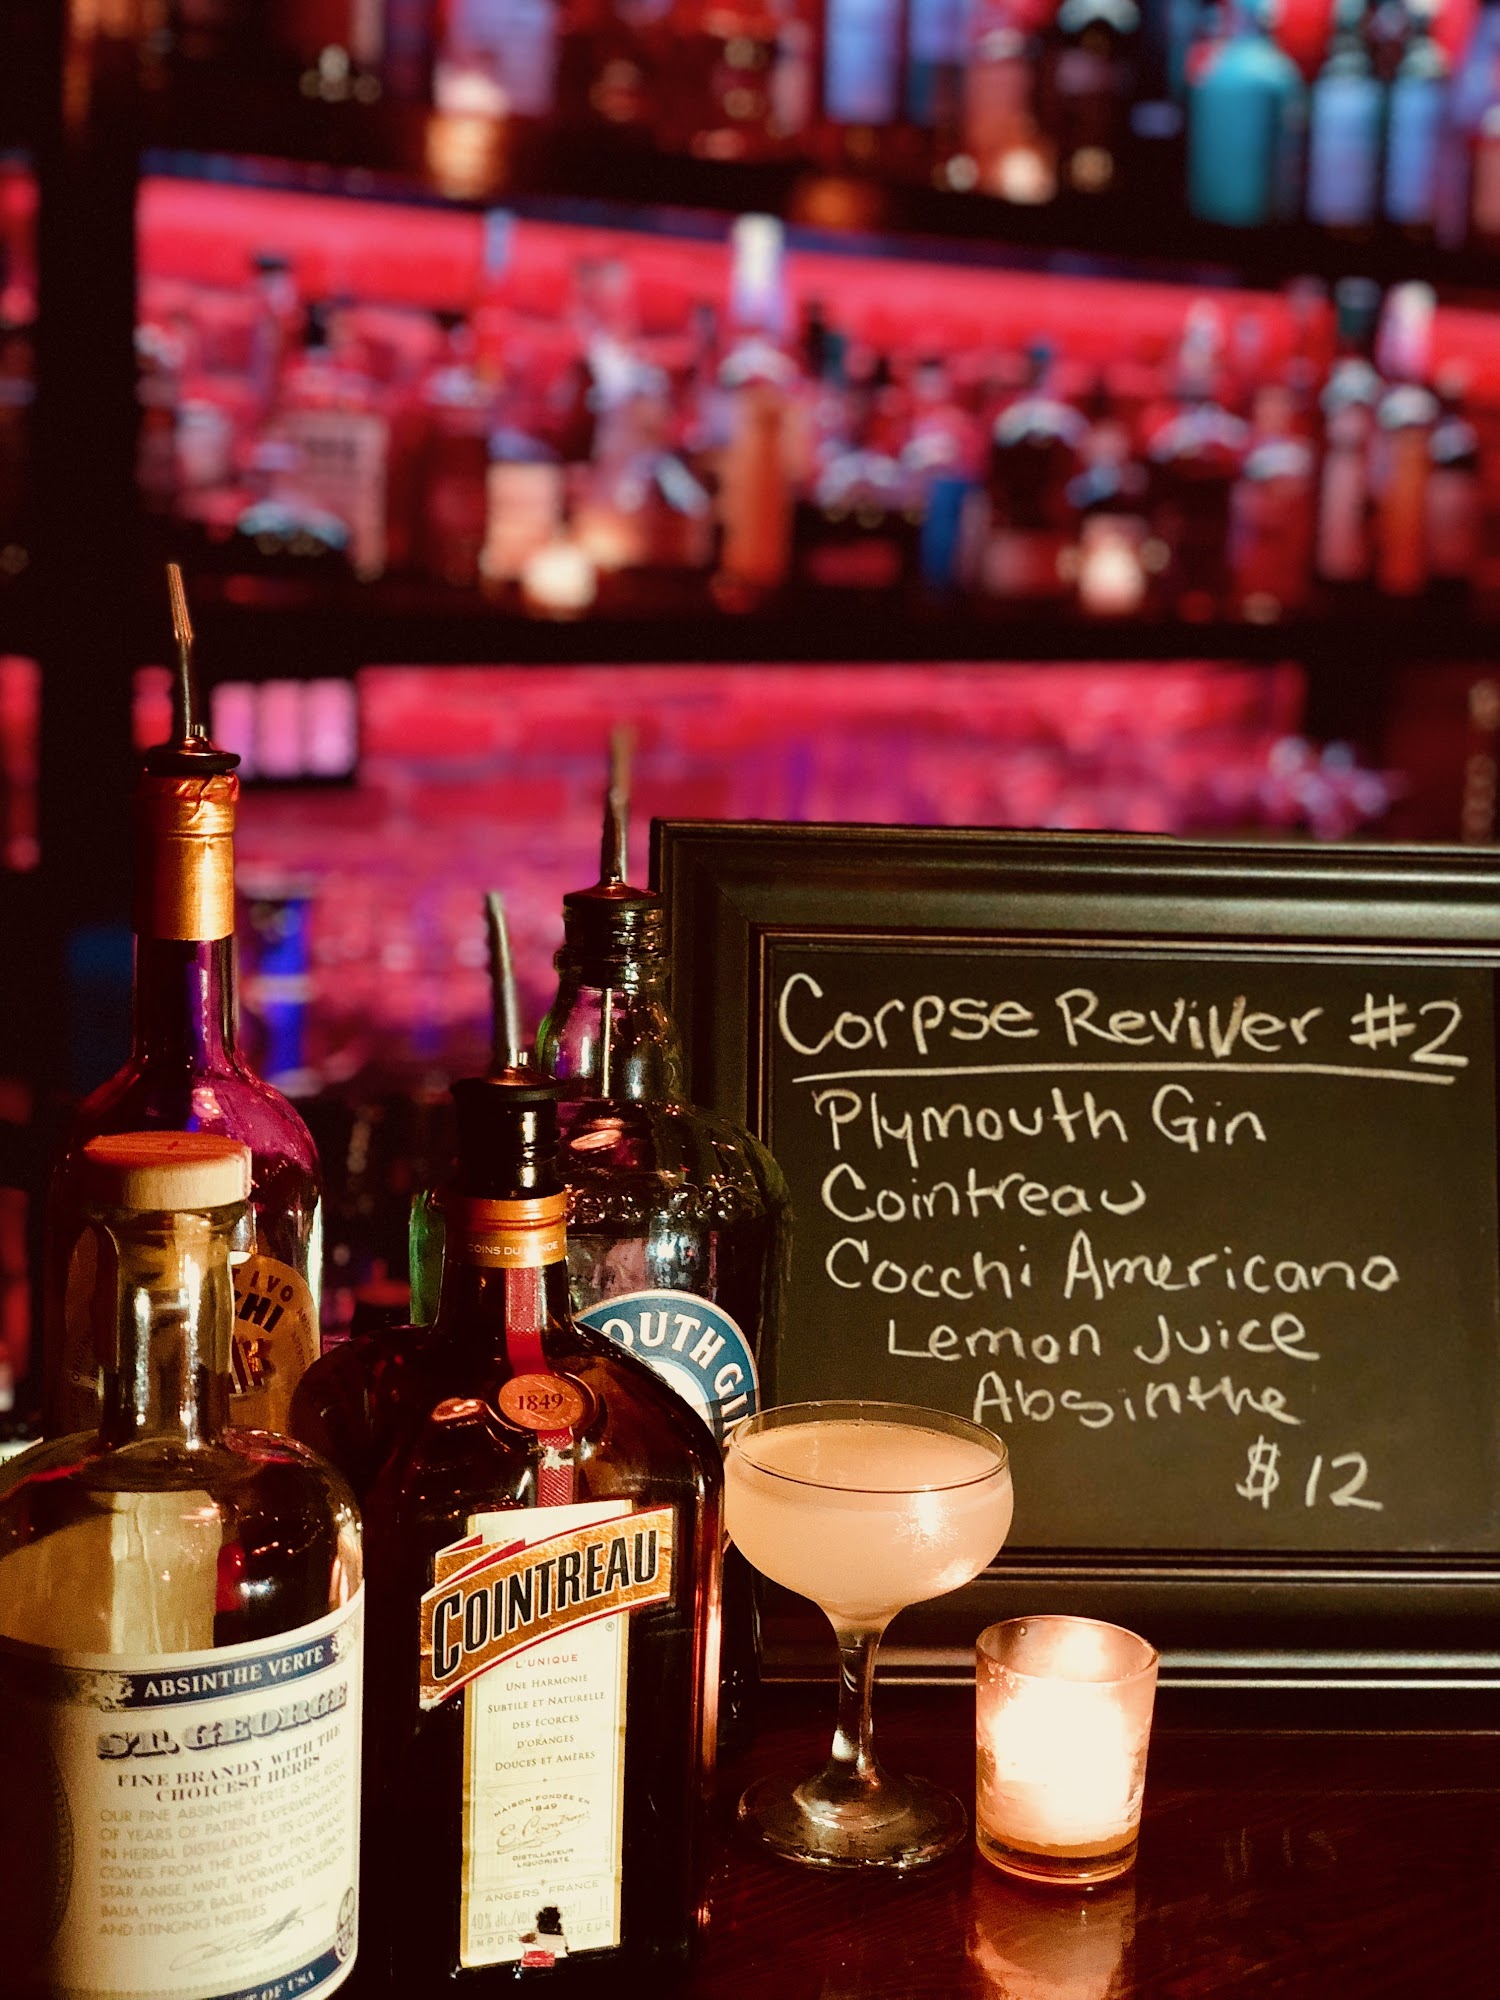 Corpse Reviver #2
Plymouth Gin
Cointreau
Cocchi Americano
Lemon Juice
Absinthe
$12
OUTH GI
COINS DU MONDE
1849
COINTREAU
L'UNIQUE
UNE HARMONIE
SUBTILE ET NATURELLE
DES ÉCORCES
D'ORANGES
DOUCES ET AMÈRES
MAISON FONDÉE EN
1849
DISTILLATEUR
LIQUORISTE
ANGERS FRANCE
40% alc./vol.
ABSINTHE VERTE
ST. GEORGE
FINE BRANDY WITH THE
CHOICEST HERBS
OUR FINE ABSINTHE VERTE IS THE RESULT
OF YEARS OF PATIENT EXPERIMENTATION
IN HERBAL DISTILLATION. ITS COMPLEXITY
COMES FROM THE USE OF FINE BRANDY,
STAR ANISE, MINT, WORMWOOD, LEMON
BALM, HYSSOP, BASIL, FENNEL, TARRAGON,
AND STINGING NETTLES
OF USA